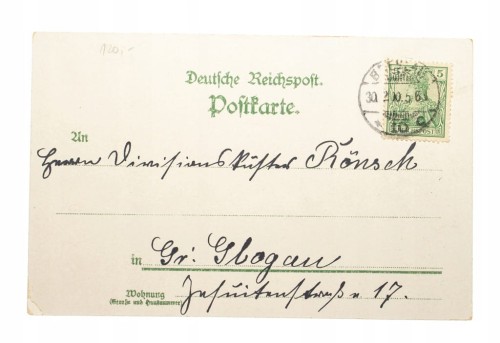 120,-
Deutsche Reichspost.
Postkarte.
5
An
Herrn Divisionsküster Rönsch
in Gr: Glogau
Wohnung
(Straße und Hausnummer)
Jesuitenstraße 17.